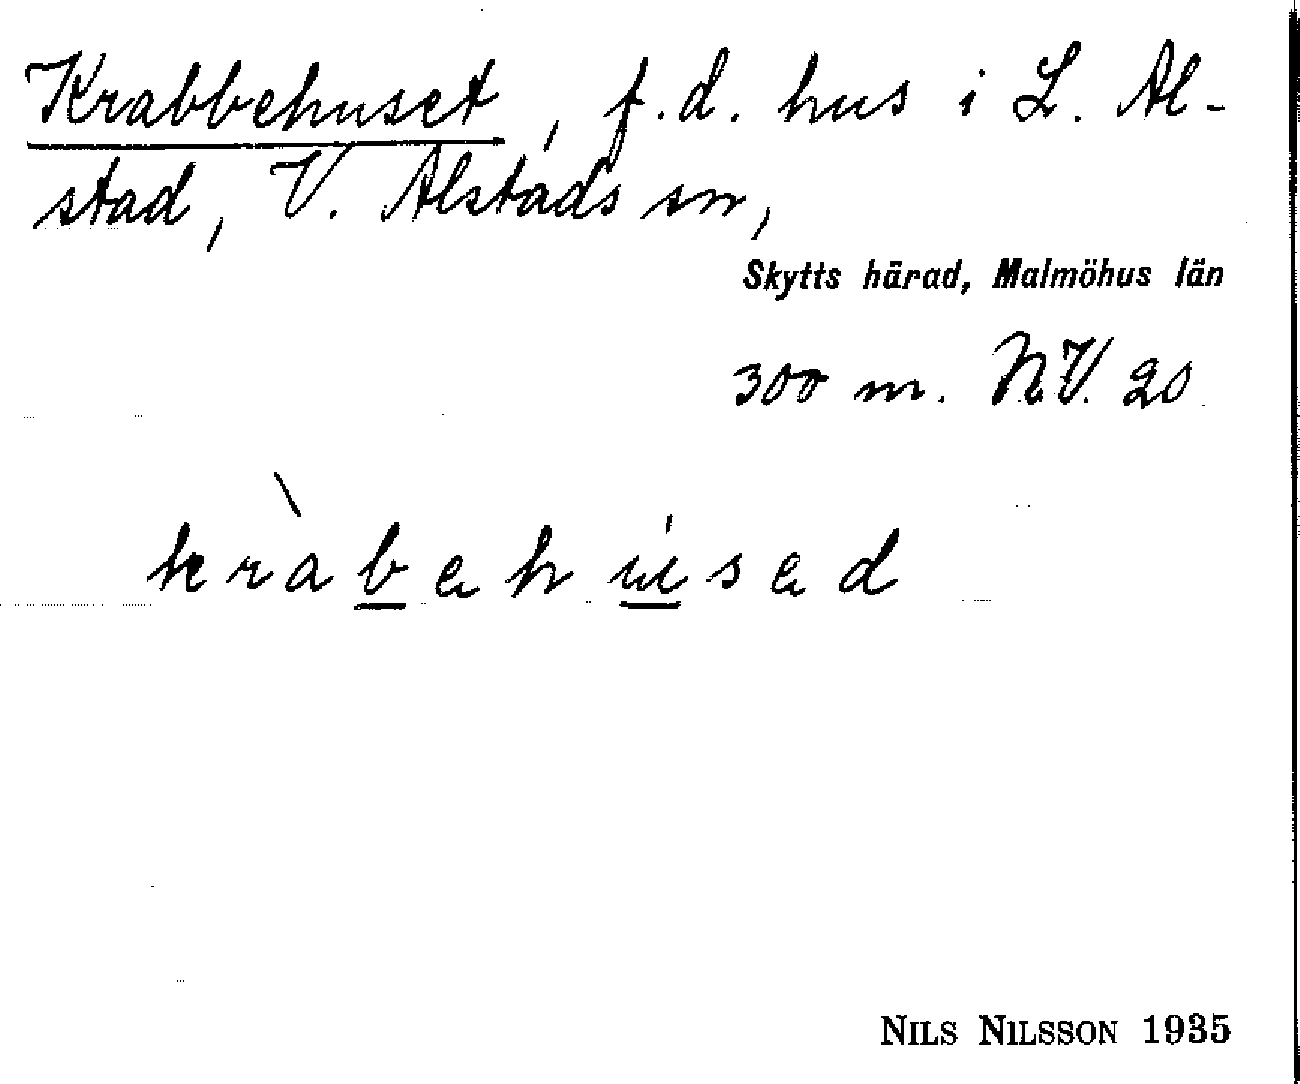 Krabbehuset, f.d. hus i L. Al-
stad, V. Alstads sn,
Skytts härad, Malmöhus län
300 m. N.V. 20
kràbehúsed
NILS NILSSON 1935